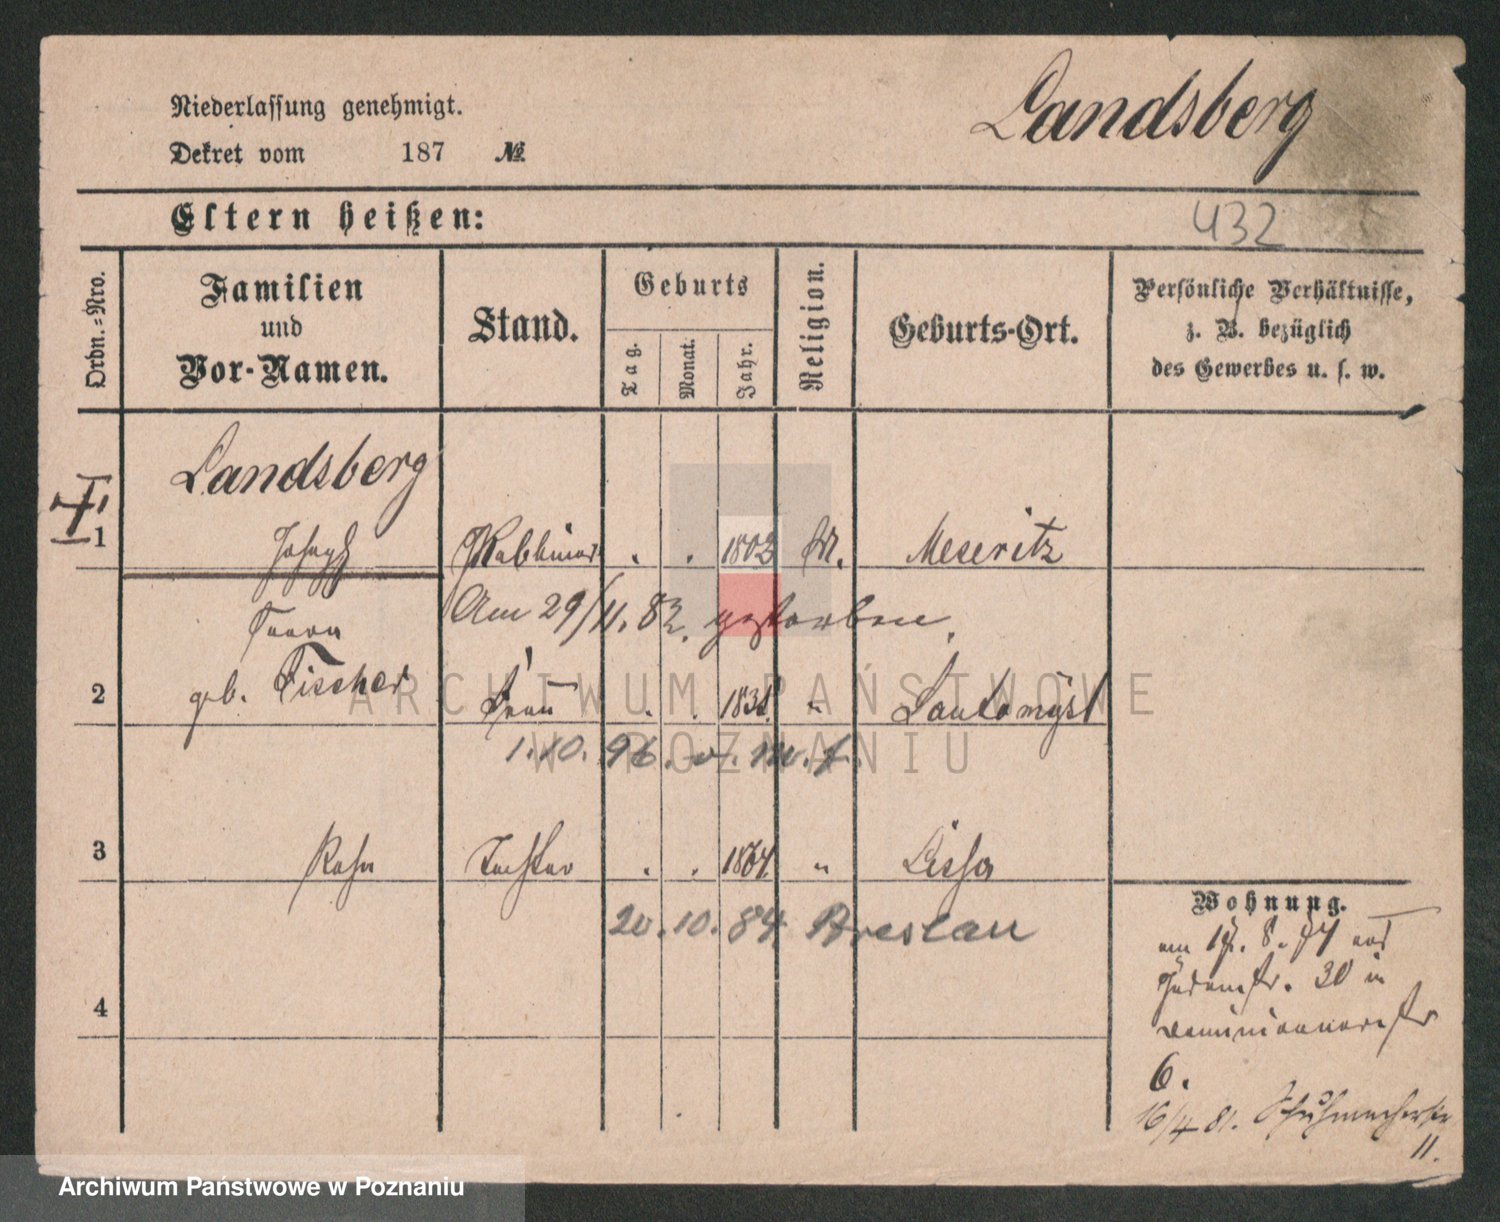 Niederlassung genehmigt.
Landsberg
Dekret vom 187 №
Eltern heißen:
432
Ordn.=Nro.
Familien
und
Vor-Namen.
Stand.
Geburts
Tag.
Monat.
Jahr.
Religion.
Geburts-Ort.
Persönliche Verhältnisse,
z. B. bezüglich
des Gewerbes u. s. w.
Landsberg
1 Joseph Rabbiner . . 1803 Meseritz
Am 29/11. 82. gestorben.
2 geb. Fischer Frau . . " Lautomysl
1.10. 96. v. m. f.
3 Tochter . . 1864 " Lissa
20.10.84 Breslau
4
Wohnung.
am 17. 8. 74 aus
Judenstr. 30 in
Dominikanerstr
6.
16/4 81. Schuhmacherstr
11.
ARCHIWUM PAŃSTWOWE
W POZNANIU
Archiwum Państwowe w Poznaniu